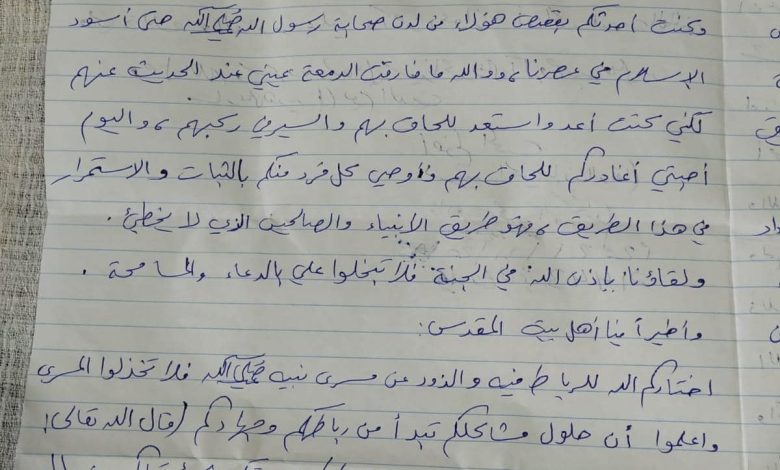 وكنت أحدثكم بقصص هؤلاء من لدن صحابة رسول الله ﷺ حتى أسود
الإسلام في عصرنا، ووالله ما فارقت الدمعة عيني عند الحديث عنهم
لكني كنت أعد واستعد للحاق بهم والسير في ركبهم، واليوم
أحبتي أغادركم للحاق بهم فأوصي كل فرد منكم بالثبات والاستمرار
في هذا الطريق، فهو طريق الأنبياء والصالحين الذي لا يخطئ.
ولقاؤنا بإذن الله في الجنة فلا تبخلوا علي بالدعاء والمسامحة.
وأخيراً يا أهل بيت المقدس:
اختاركم الله للرباط فيه والذود عن مسرى نبيه ﷺ فلا تخذلوا المسرى
واعلموا أن حلول مشاكلكم تبدأ من رباطكم وجهادكم (قال الله تعالى: